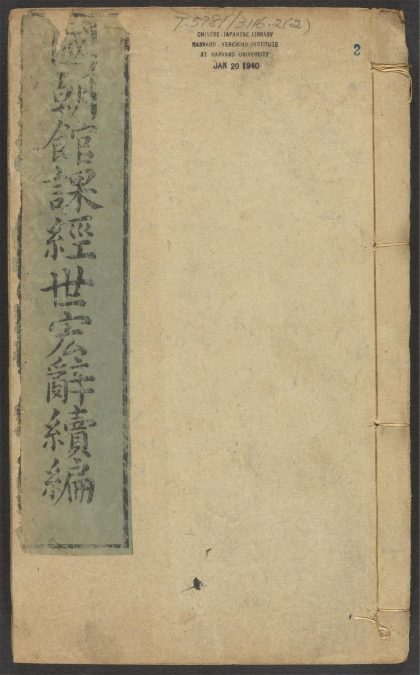 T 5781/3116.2(2)
CHINESE-JAPANESE LIBRARY
HARVARD-YENCHING INSTITUTE
AT HARVARD UNIVERSITY
JAN 20 1940
2
國朝館課經世宏辭續編